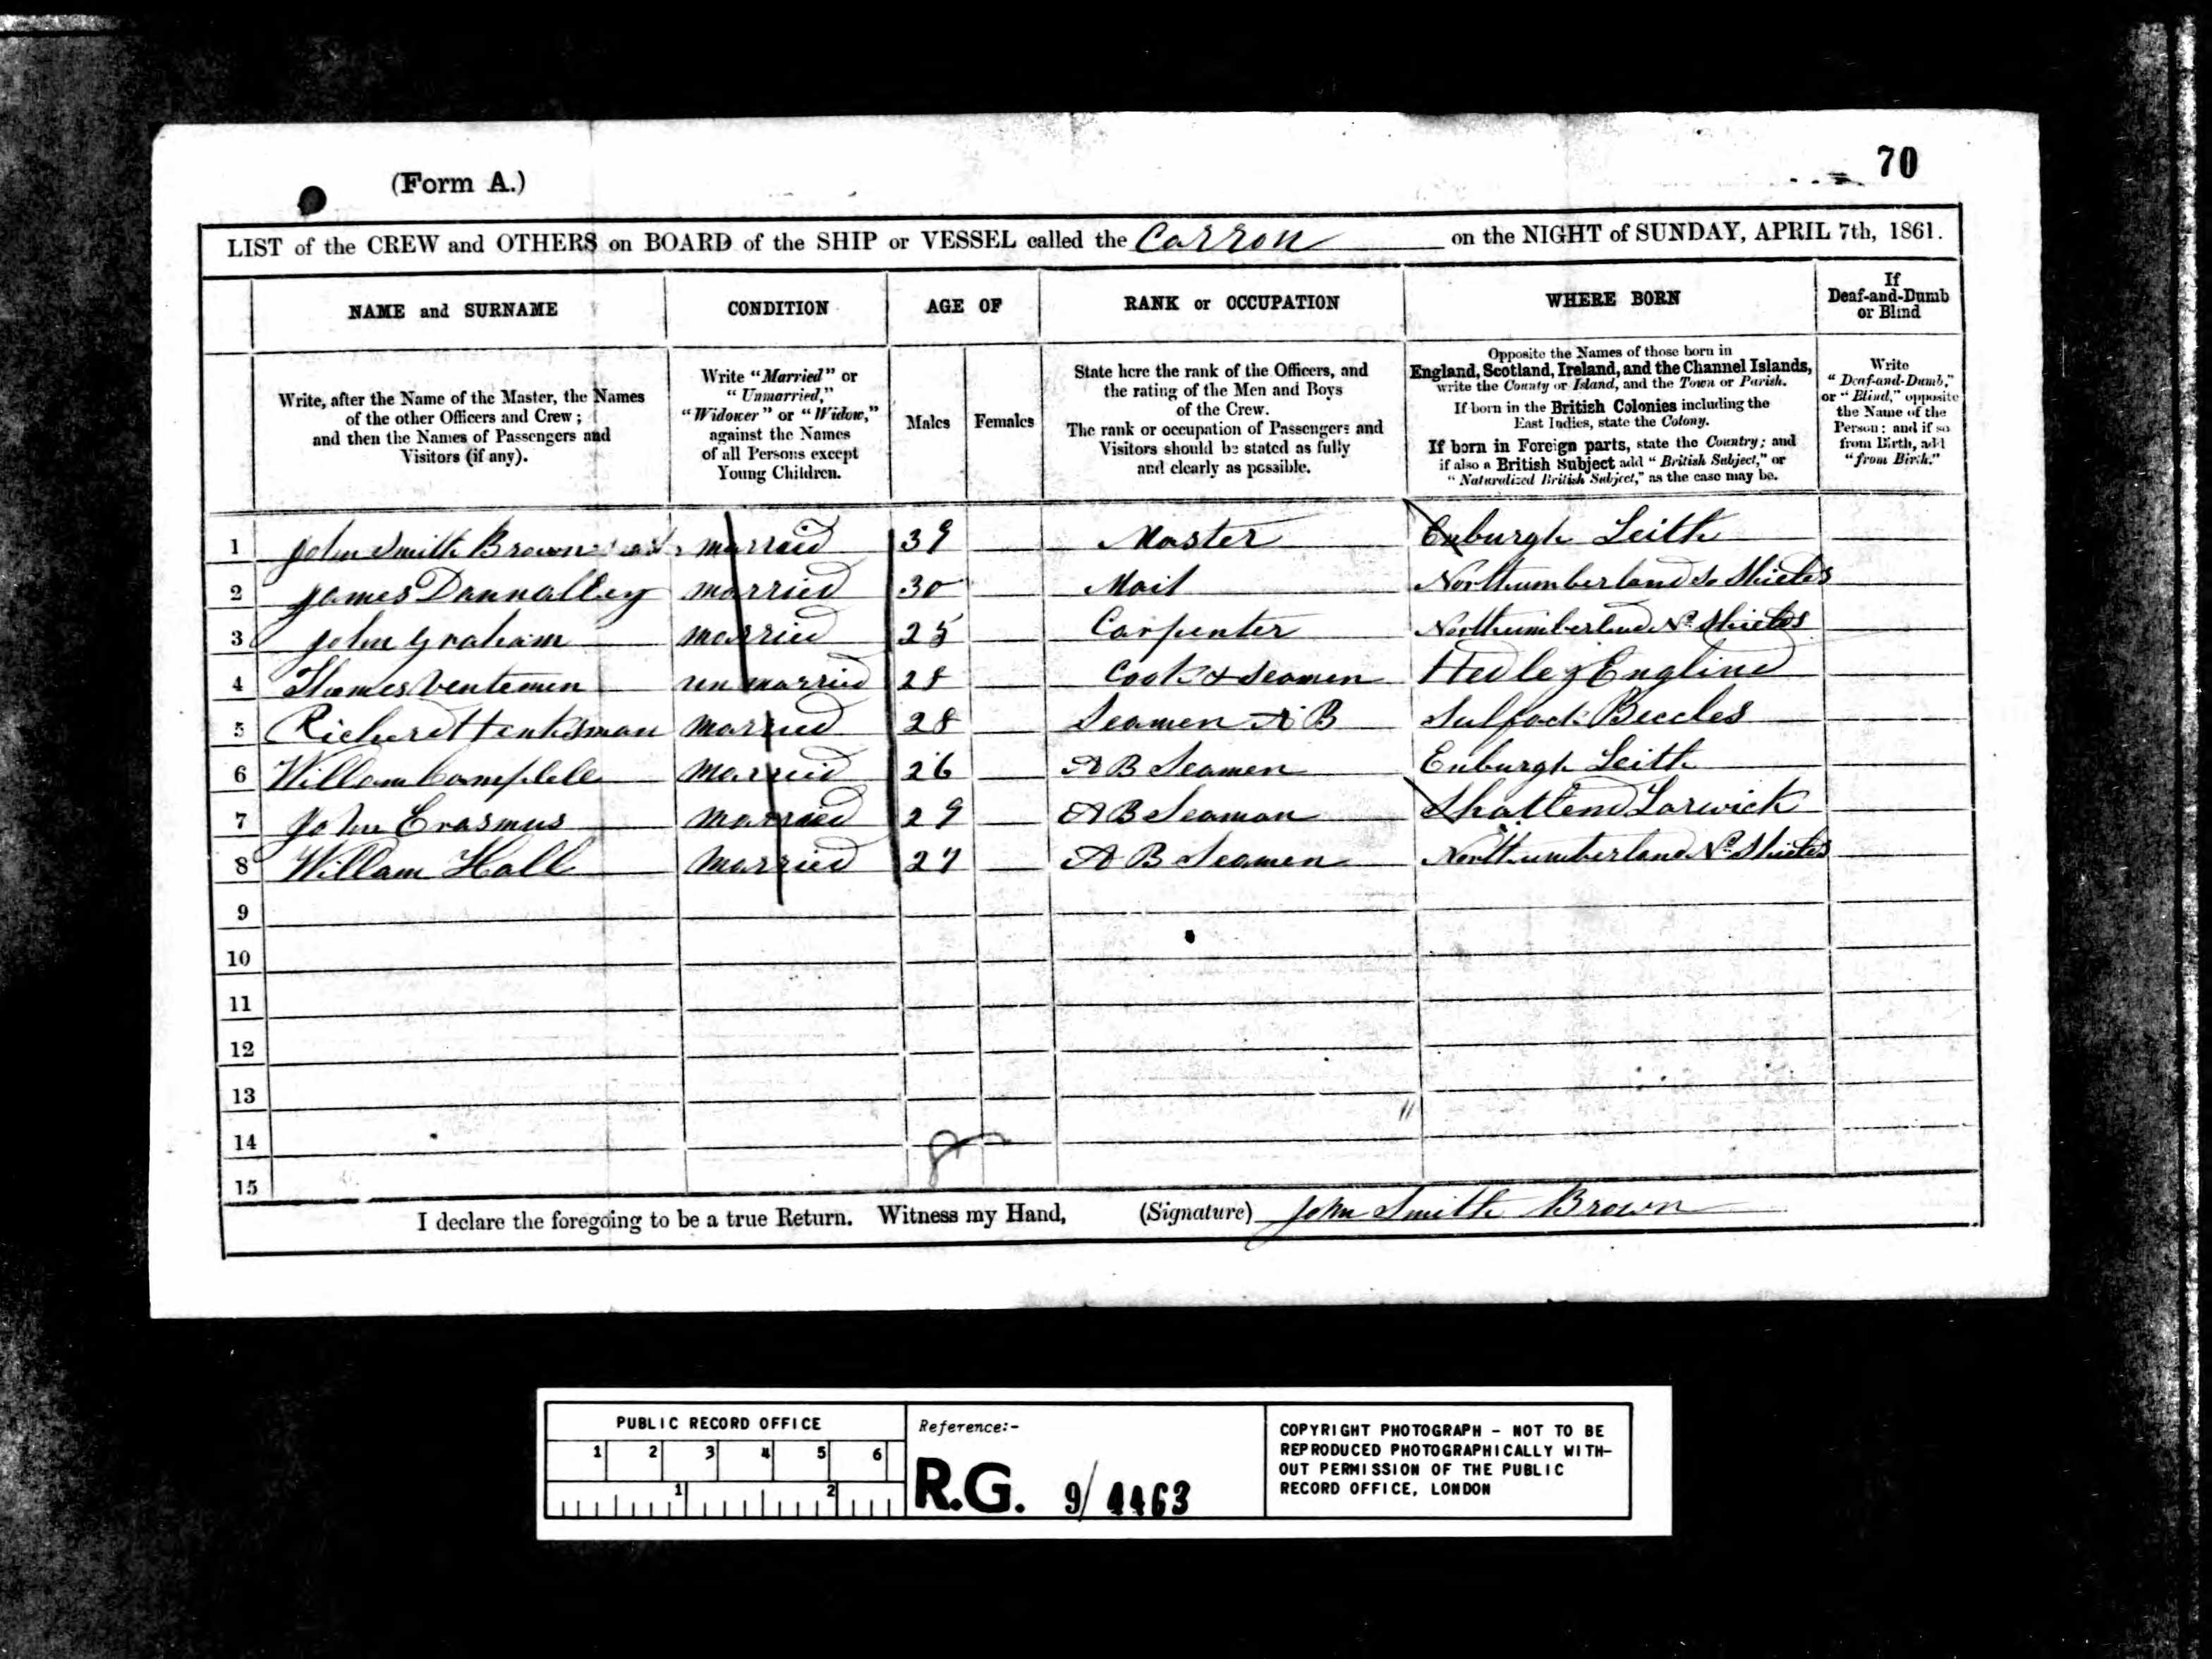 70
(Form A.)
LIST of the CREW and OTHERS on BOARD of the SHIP or VESSEL called the Carron on the NIGHT of SUNDAY, APRIL 7th, 1861.
NAME and SURNAME
CONDITION
AGE OF
RANK or OCCUPATION
WHERE BORN
If
Deaf-and-Dumb
or Blind
Write, after the Name of the Master, the Names
of the other Officers and Crew;
and then the Names of Passengers and
Visitors (if any).
Write "Married" or
"Unmarried,"
"Widower" or "Widow,"
against the Names
of all Persons except
Young Children.
Males
Females
State here the rank of the Officers, and
the rating of the Men and Boys
of the Crew.
The rank or occupation of Passengers and
Visitors should be stated as fully
and clearly as possible.
Opposite the Names of those born in
England, Scotland, Ireland, and the Channel Islands,
write the County or Island, and the Town or Parish.
If born in the British Colonies including the
East Indies, state the Colony.
If born in Foreign parts, state the Country; and
if also a British Subject add "British Subject," or
"Naturalized British Subject," as the case may be.
Write
"Deaf-and-Dumb,"
or "Blind," opposite
the Name of the
Person; and if so
from Birth, add
"from Birth."
1 John Smith Brown married 39 Master Enburgh Leith
2 James Dannalley married 30 Mait Northumberland So Shields
3 John Graham married 25 Carpenter Northumberland No Shields
4 Thomes Ventemen un married 28 Cook & Seamen Hedley Engline
5 Richered Henksman married 28 Seamen A B Sulfock Beccles
6 Willam Camplele married 26 A B Seamen Enburgh Leith
7 John Erasmus married 29 A B Seaman Shattend Larwick
8 Willam Hall married 27 A B Seamen Northumberland No Shields
9
10
11
12
13
14
15
I declare the foregoing to be a true Return. Witness my Hand, (Signature) John Smith Brown
PUBLIC RECORD OFFICE
1 2 3 4 5 6
1 2
Reference:-
R.G. 9/4463
COPYRIGHT PHOTOGRAPH - NOT TO BE
REPRODUCED PHOTOGRAPHICALLY WITH-
OUT PERMISSION OF THE PUBLIC
RECORD OFFICE, LONDON